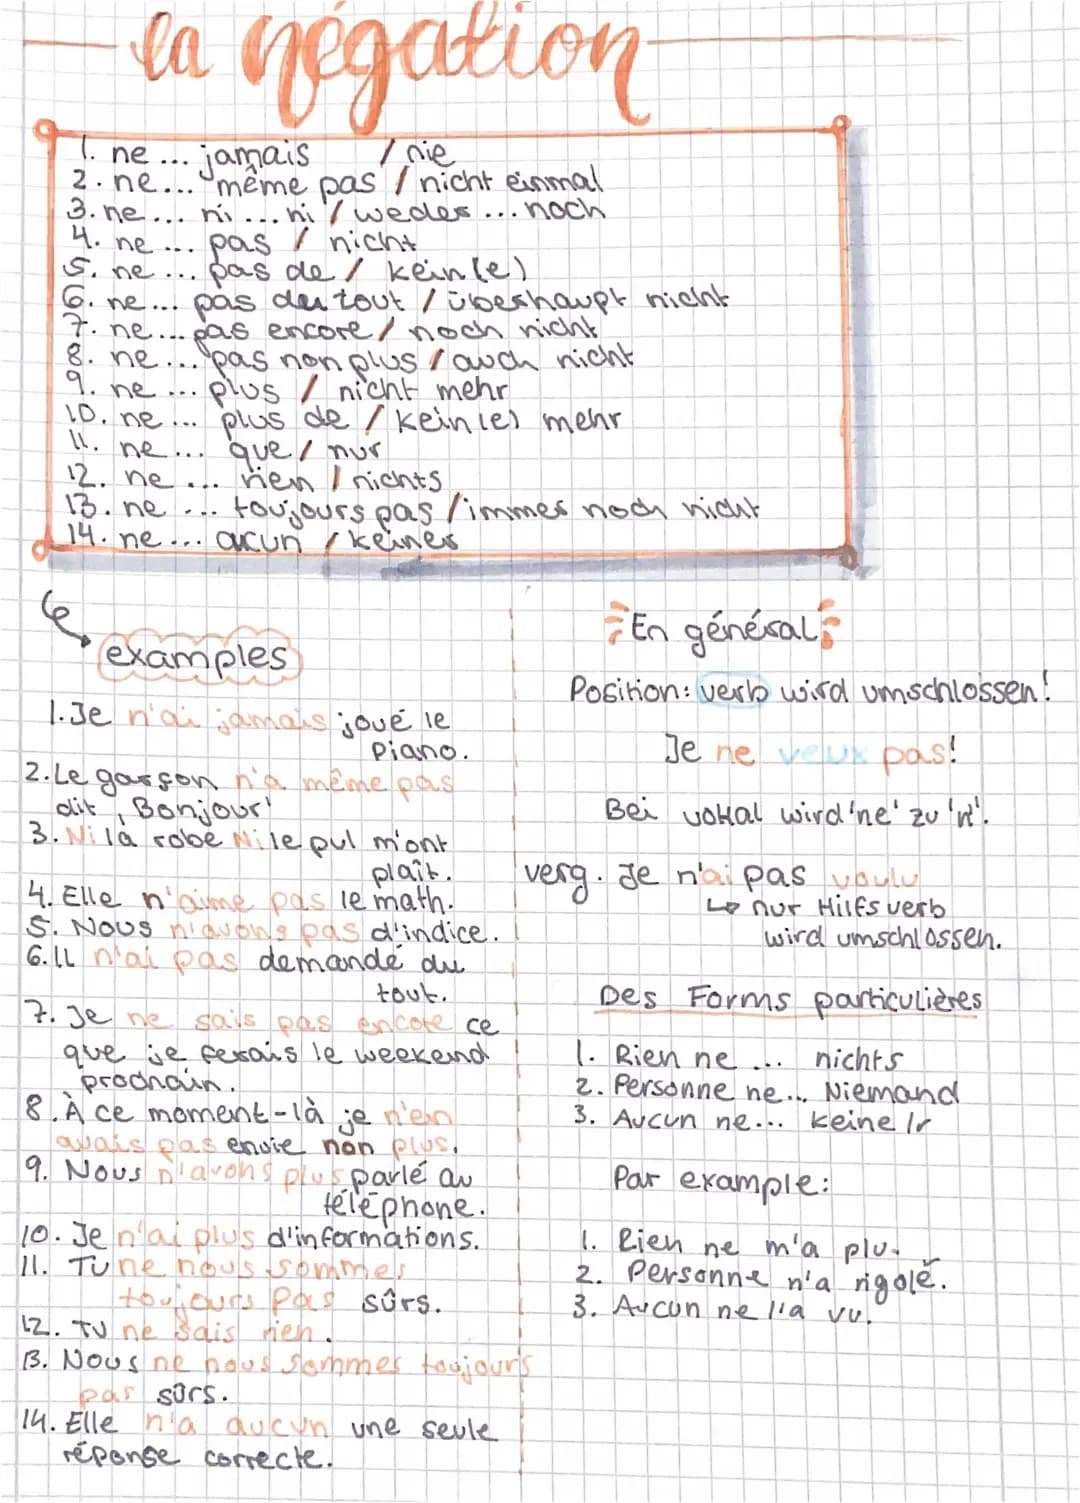 la négation
1. ne ... jamais / nie
2. ne ... même pas / nicht einmal
3. ne ... ni ... ni / weder ... noch
4. ne ... pas / nicht
5. ne ... pas de / kein(e)
6. ne ... pas du tout / überhaupt nicht
7. ne ... pas encore / noch nicht
8. ne ... pas non plus / auch nicht
9. ne ... plus / nicht mehr
10. ne ... plus de / kein(e) mehr
11. ne ... que / nur
12. ne ... rien / nichts
13. ne ... toujours pas / immer noch nicht
14. ne ... aucun / keiner
examples
1. Je n'ai jamais joué le
piano.
2. Le garson n'a même pas
dit "Bonjour'
3. Ni la robe Ni le pul m'ont
plaît.
4. Elle n'aime pas le math.
5. Nous n'avons pas d'indice.
6. Il n'ai pas demandé du
tout.
7. Je ne sais pas encore ce
que je ferais le weekend
prochain.
8. À ce moment-là je n'en
avais pas envie non plus.
9. Nous n'avons plus parlé au
téléphone.
10. Je n'ai plus d'informations.
11. Tu ne nous sommes
toujours pas sûrs.
12. Tu ne sais rien.
13. Nous ne nous sommes toujours
pas sûrs.
14. Elle n'a aucun une seule
réponse correcte.
En général
Position: verb wird umschlossen!
Je ne veux pas!
Bei vokal wird 'ne' zu 'n'.
verg. Je n'ai pas voulu
↳ nur Hilfsverb
wird umschlossen.
Des Forms particulières
1. Rien ne ... nichts
2. Personne ne... Niemand
3. Aucun ne... keine/r
Par example:
1. Rien ne m'a plu.
2. Personne n'a rigolé.
3. Aucun ne l'a vu.